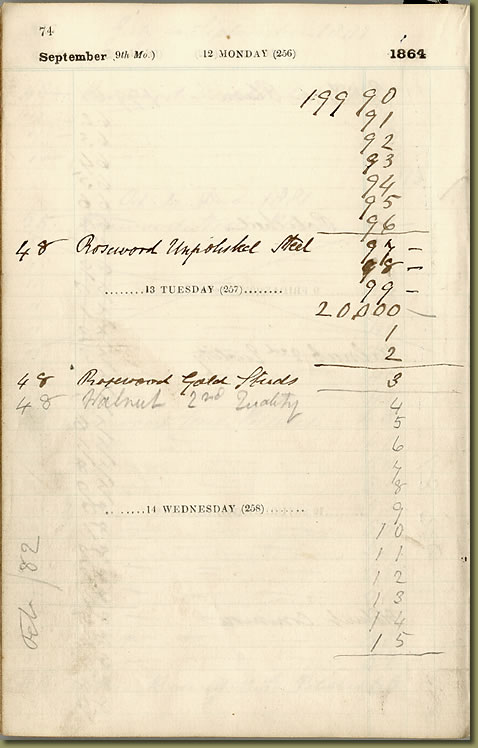 74
September (9th Mo.) 12 MONDAY (256) 1864
199 90
91
92
93
94
95
96
48 Rosewood Unpolished Steel 97 -
98 -
........13 TUESDAY (257)........ 99 -
20,000
1
2
48 Rosewood Gold Studs 3
48 Walnut 2nd Quality 4
5
6
7
8
........14 WEDNESDAY (258)........ 9
10
11
12
13
14
15
Feb /82